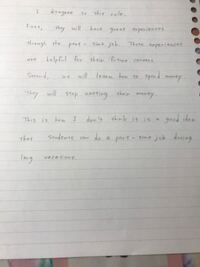 I disagree to this rule.
First, they will have great experiences
through the part-time job. These experiences
are helpful for their future careers.
Second, we will learn how to spend money.
They will stop wasting their money.
This is how I don't think it is a good idea
that students can do a part-time job during
long vacations.